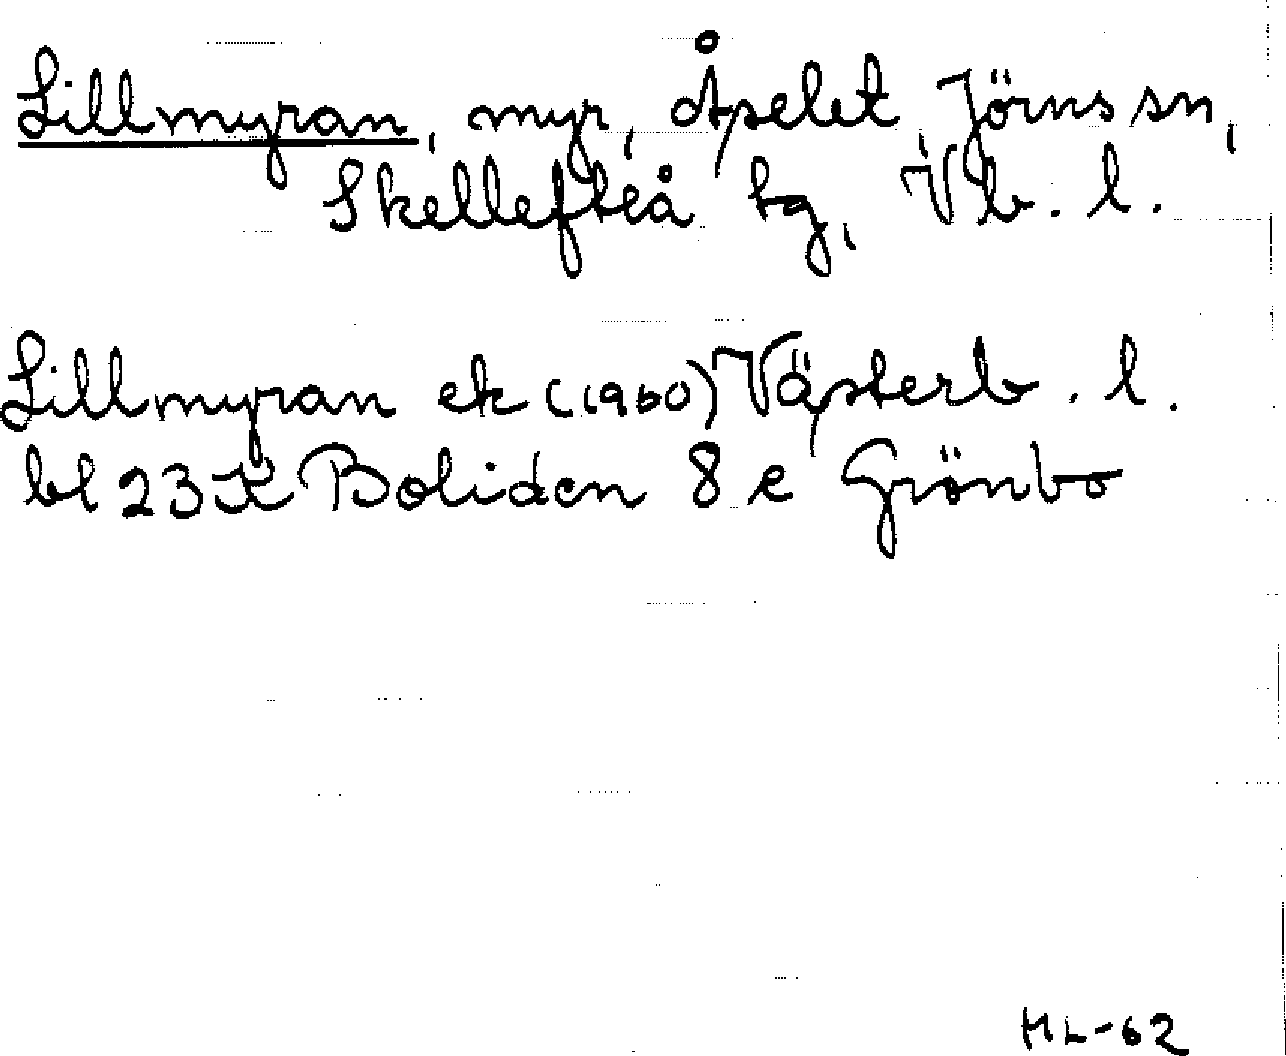 Lillmyran, myr, Åpselet, Jörns sn,
Skellefteå tg, Vb. l.
Lillmyran ek (1960) Västerb. l.
bl 23K Boliden 8 e Grönbo
HL-62